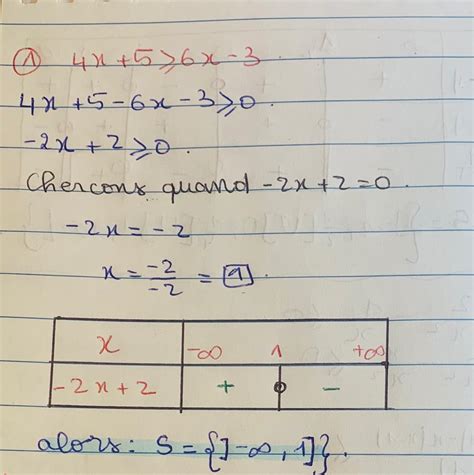 ① 4x+5⩾6x-3
4x+5-6x-3⩾0.
-2x+2⩾0.
Chercons quand -2x+2=0.
-2x=-2
x=-2/-2=1.
x -∞ 1 +∞
-2x+2 + 0 -
alors: S={]-∞,1]}.